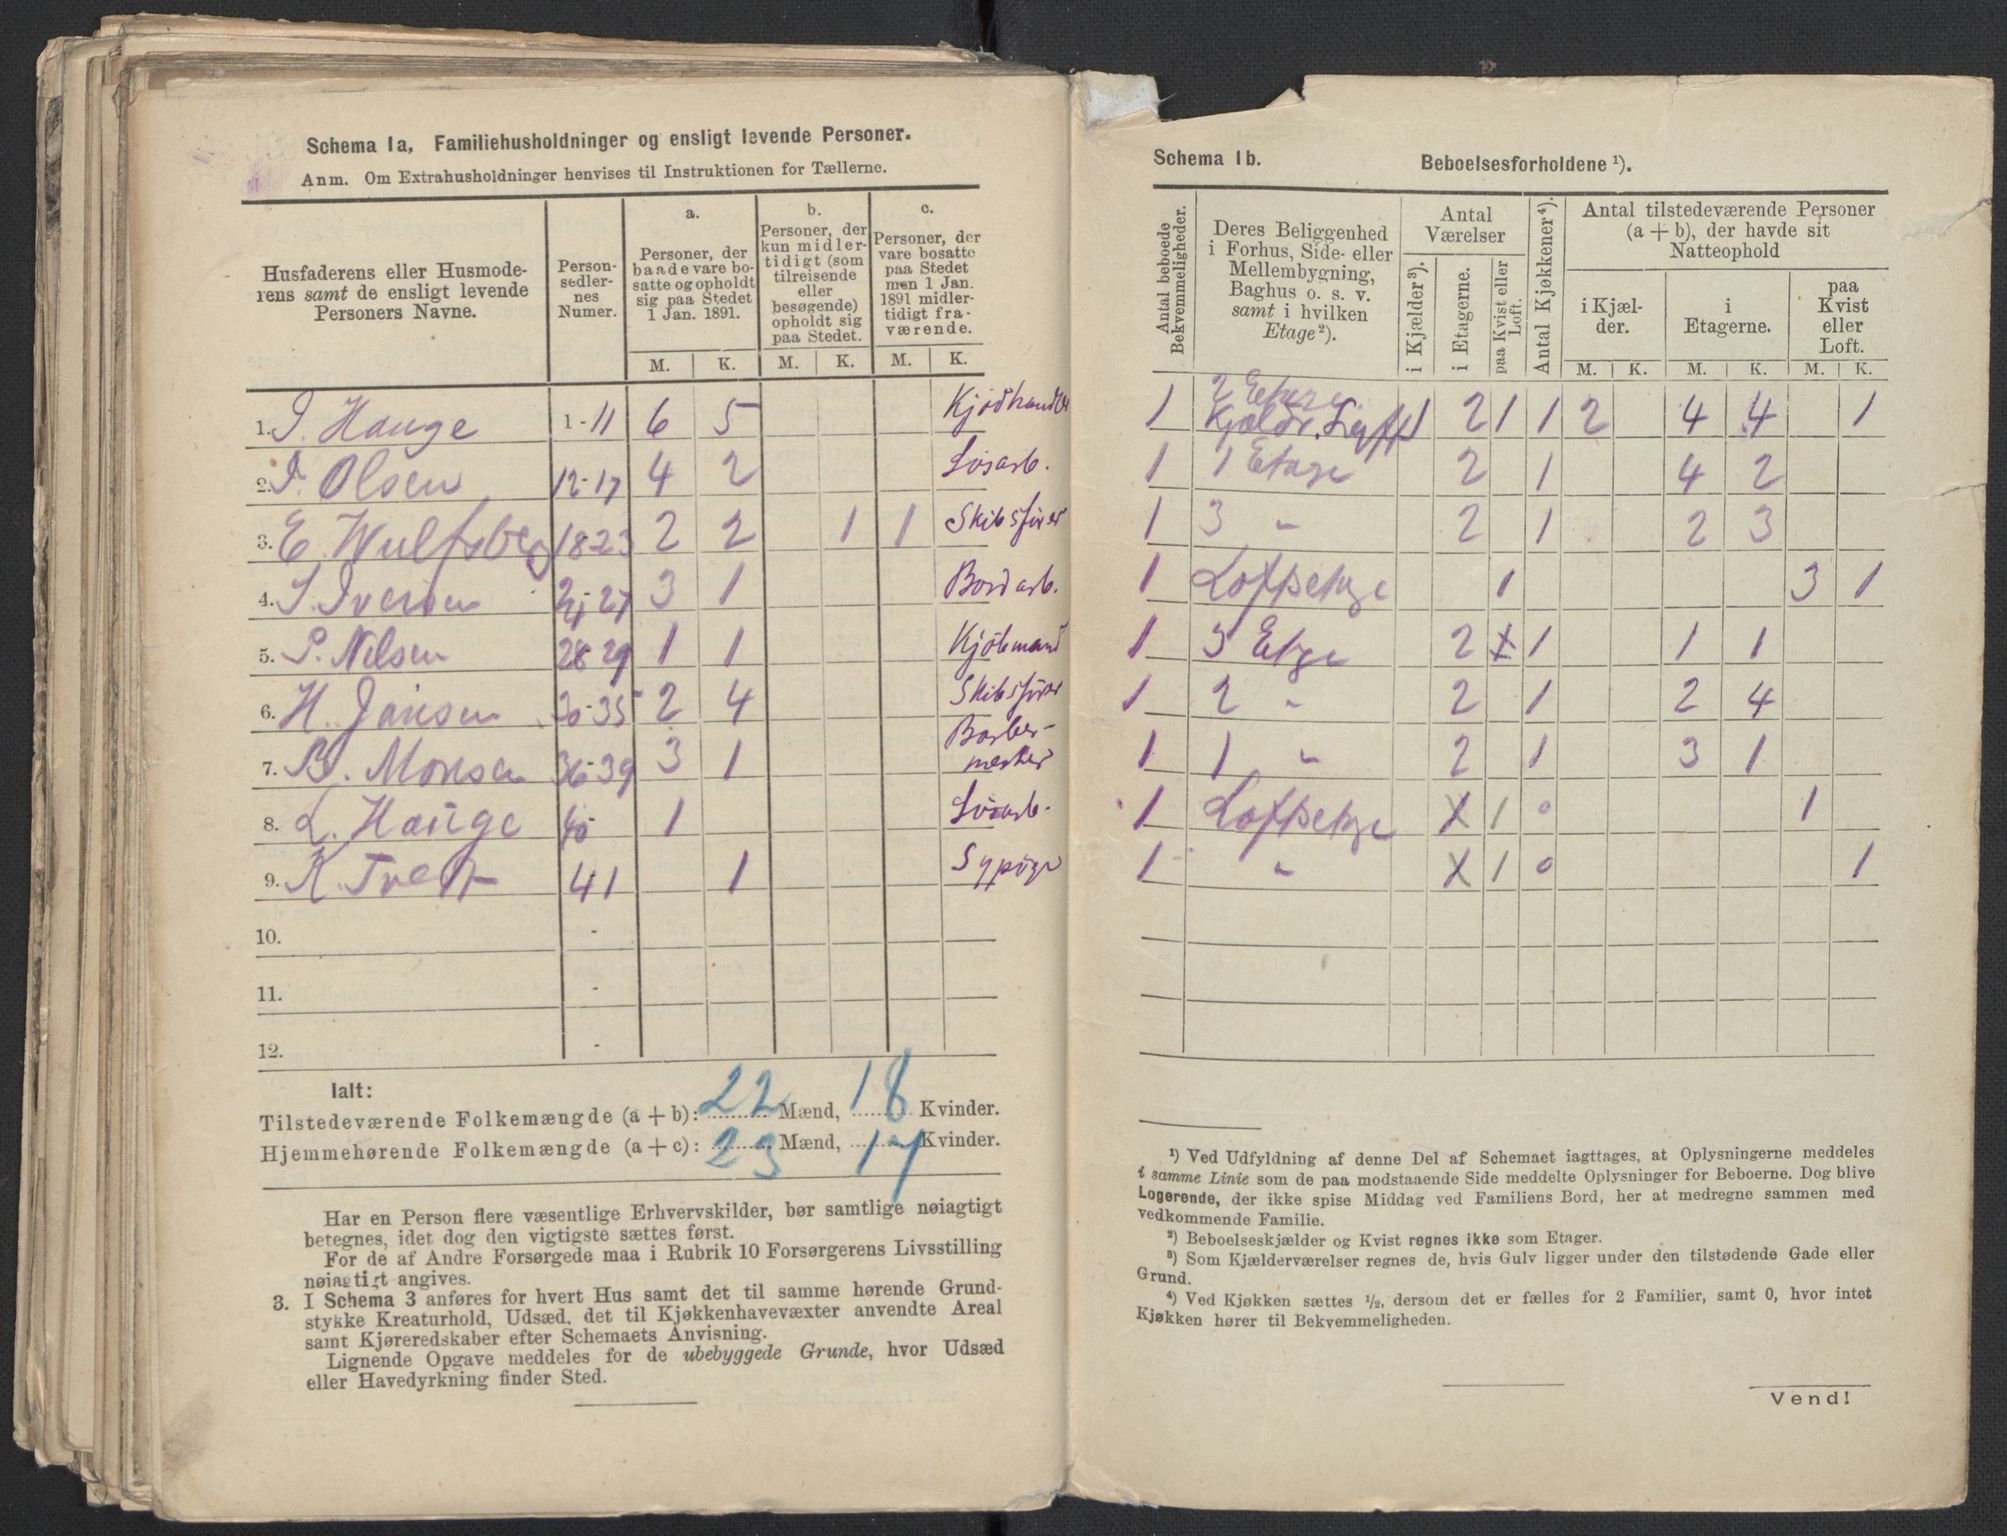 Schema 1a, Familiehusholdninger og ensligt levende Personer.
Anm. Om Extrahusholdninger henvises til Instruktionen for Tællerne.
Husfaderens eller Husmoderens samt de ensligt levende Personers Navne.
Person-sedlernes Numer.
a. Personer, der baade vare bosatte og opholdt sig paa Stedet 1 Jan. 1891.
b. Personer, der kun midlertidigt (som tilreisende eller besøgende) opholdt sig paa Stedet.
c. Personer, der vare bosatte paa Stedet men 1 Jan. 1891 midlertidigt fraværende.
M. K. M. K. M. K.
1. J. Hauge 1-11 6 5 Kjödhandler
2. J. Olsen 12-17 4 2 Lösarb.
3. E. Wulfsberg 18 23 2 2 1 1 Skibsförer
4. S. Iversen 24-27 3 1 Bordarb.
5. P. Nilsen 28 29 1 1 Kjöbmand
6. H. Jansen 30-35 2 4 Skibsförer
7. B. Monsen 36-39 3 1 Barber-
mester
8. L. Hauge 40 1 Lösarb.
9. K. Tvedt 41 1 Sypige
10. -
11. -
12. -
Ialt:
Tilstedeværende Folkemængde (a + b): 22 Mænd, 18 Kvinder.
Hjemmehørende Folkemængde (a + c): 23 Mænd, 17 Kvinder.
Har en Person flere væsentlige Erhvervskilder, bør samtlige nøiagtigt
betegnes, idet dog den vigtigste sættes først.
For de af Andre Forsørgede maa i Rubrik 10 Forsørgerens Livsstilling
nøiagtigt angives.
3. I Schema 3 anføres for hvert Hus samt det til samme hørende Grund-
stykke Kreaturhold, Udsæd, det til Kjøkkenhavevæxter anvendte Areal
samt Kjøreredskaber efter Schemaets Anvisning.
Lignende Opgave meddeles for de ubebyggede Grunde, hvor Udsæd
eller Havedyrkning finder Sted.
Schema 1b. Beboelsesforholdene ¹).
Antal beboede Bekvemmeligheder.
Deres Beliggenhed i Forhus, Side- eller Mellembygning, Baghus o. s. v. samt i hvilken Etage²).
Antal Værelser
i Kjælder³).
i Etagerne.
paa Kvist eller Loft.
Antal Kjøkkener⁴).
Antal tilstedeværende Personer (a + b), der havde sit Natteophold
i Kjælder.
i Etagerne.
paa Kvist eller Loft.
M. K. M. K. M. K.
1 2 Etager
Kjælder. Loft 1 2 1 1 2 4 4 1
1 1 Etage 2 1 4 2
1 3 " 2 1 2 3
1 Loftsetage 1 3 1
1 3 Etage 2 1 1 1
1 2 " 2 1 2 4
1 1 " 2 1 3 1
1 Loftsetage 1 0 1
1 " 1 0 1
¹) Ved Udfyldning af denne Del af Schemaet iagttages, at Oplysningerne meddeles
i samme Linie som de paa modstaaende Side meddelte Oplysninger for Beboerne. Dog blive
Logerende, der ikke spise Middag ved Familiens Bord, her at medregne sammen med
vedkommende Familie.
²) Beboelseskjælder og Kvist regnes ikke som Etager.
³) Som Kjælderværelser regnes de, hvis Gulv ligger under den tilstødende Gade eller
Grund.
⁴) Ved Kjøkken sættes ½, dersom det er fælles for 2 Familier, samt 0, hvor intet
Kjøkken hører til Bekvemmeligheden.
Vend!